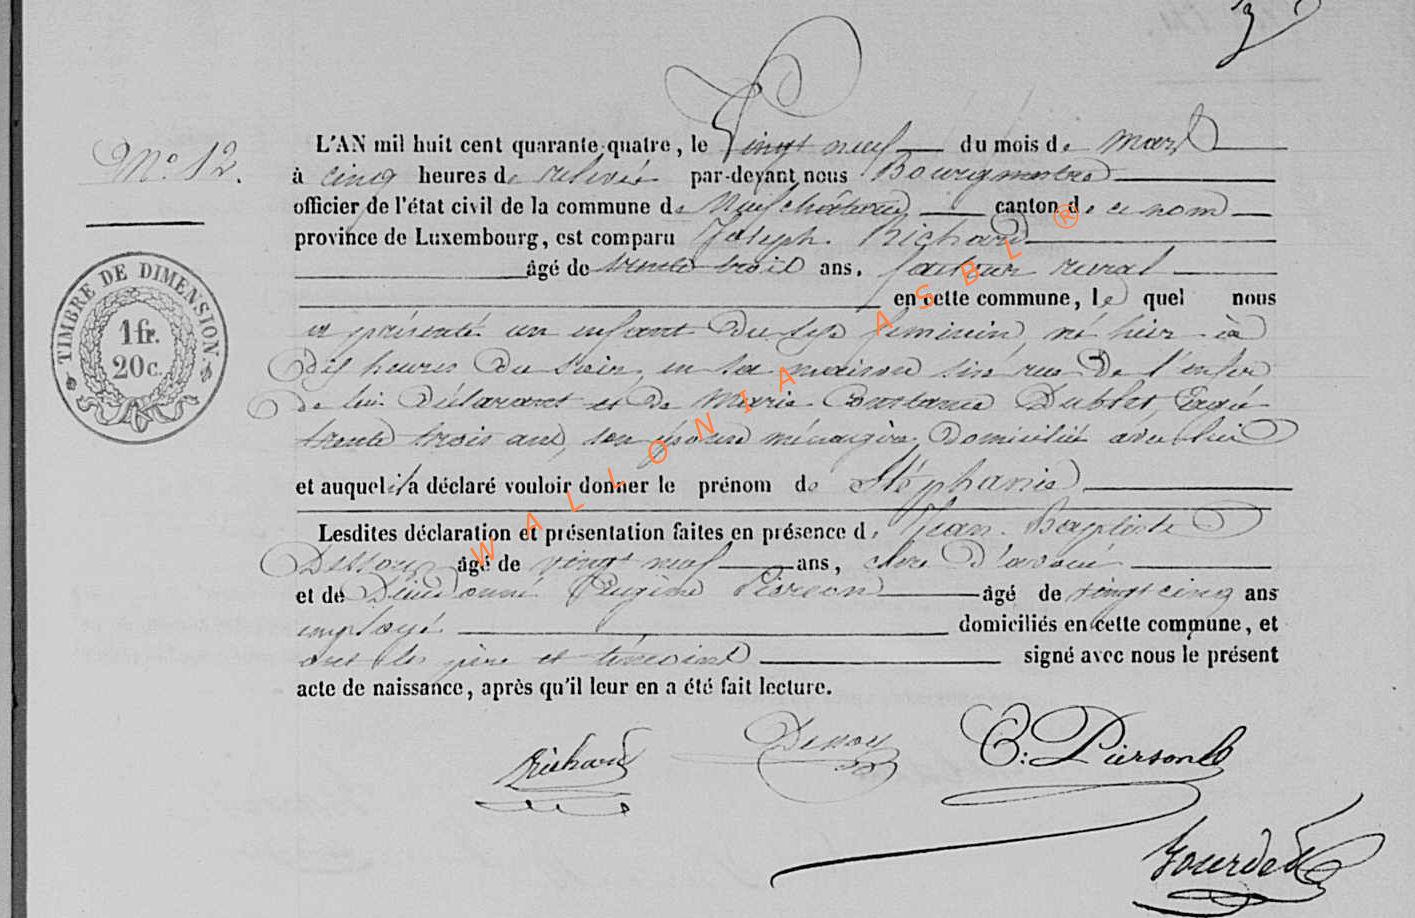 N.o 12.
L'AN mil huit cent quarante-quatre, le vingt neuf du mois de mars
à cinq heures de relevée par-devant nous Bourgmestre
officier de l'état civil de la commune de Neufchâteau canton de ce nom
province de Luxembourg, est comparu Joseph Richard
âgé de trente trois ans, facteur rural
en cette commune, le quel nous
a présenté un enfant du sexe feminin, né hier à
dix heures du soir, en sa maison sise rue de l'enfer
de lui déclarant et de Marie Constance Dublet, agée
trente trois ans, son épouse ménagère, domiciliée avec lui
et auquel il a déclaré vouloir donner le prénom de Stéphanie
Lesdites déclaration et présentation faites en présence de Jean-Baptiste
âgé de vingt neuf ans, clerc d'avoué
et de Dieudonné Eugène Pierson âgé de vingt cinq ans
employé domiciliés en cette commune, et
ont les père et témoins signé avec nous le présent
acte de naissance, après qu'il leur en a été fait lecture.
TIMBRE DE DIMENSION.
1 fr.
20 c.
Richard
E: Pierson
WALLONIA ASBL ®